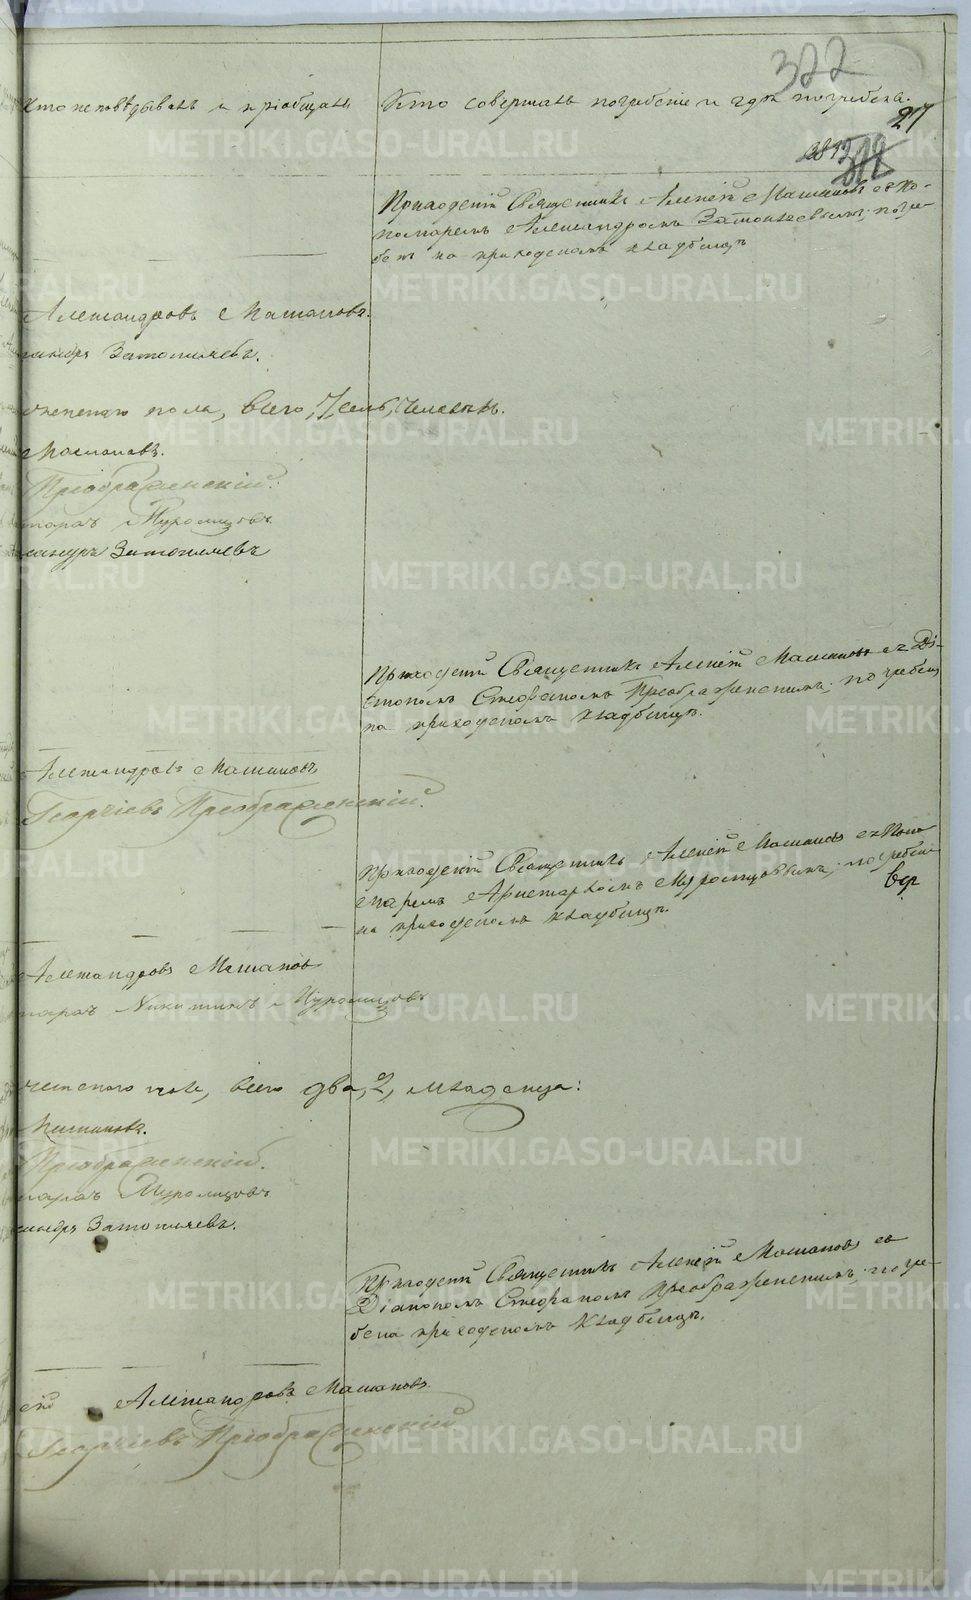 322
Кто исповѣдывалъ и пріобщалъ
Кто совершалъ погребеніе и гдѣ погребены.
217
Приходскій Священникъ Алексѣй Машановъ съ По-
номаремъ Александромъ Затопляевымъ; погре-
бенъ на приходскомъ кладбищѣ
Александровъ Машановъ.
Затопляевъ.
женскаго пола, всего, 7, семь, человѣкъ.
Машановъ.
Преображенскій.
Муромцовъ
Затопляевъ
Приходскій Священникъ Алексѣй Машановъ съ Ді-
кономъ Стефаномъ Преображенскимъ; погребены
на приходскомъ кладбищѣ.
Александровъ Машановъ
Георгіевъ Преображенскій.
Приходскій Священникъ Алексѣй Машановъ съ Поно
маремъ Аристархомъ Муромцовымъ; погребены
на приходскомъ кладбищѣ.
Александровъ Машановъ
Никитинъ Муромцовъ
женскаго пола, всего два, 2, младенца:
Машановъ.
Преображенскій.
Муромцовъ
Затопляевъ.
Приходскій Священникъ Алексѣй Машановъ съ
Діакономъ Стефаномъ Преображенскимъ; погре-
бена приходскомъ кладбищѣ.
Александровъ Машановъ
Георгіевъ Преображенскій
METRIKI.GASO-URAL.RU